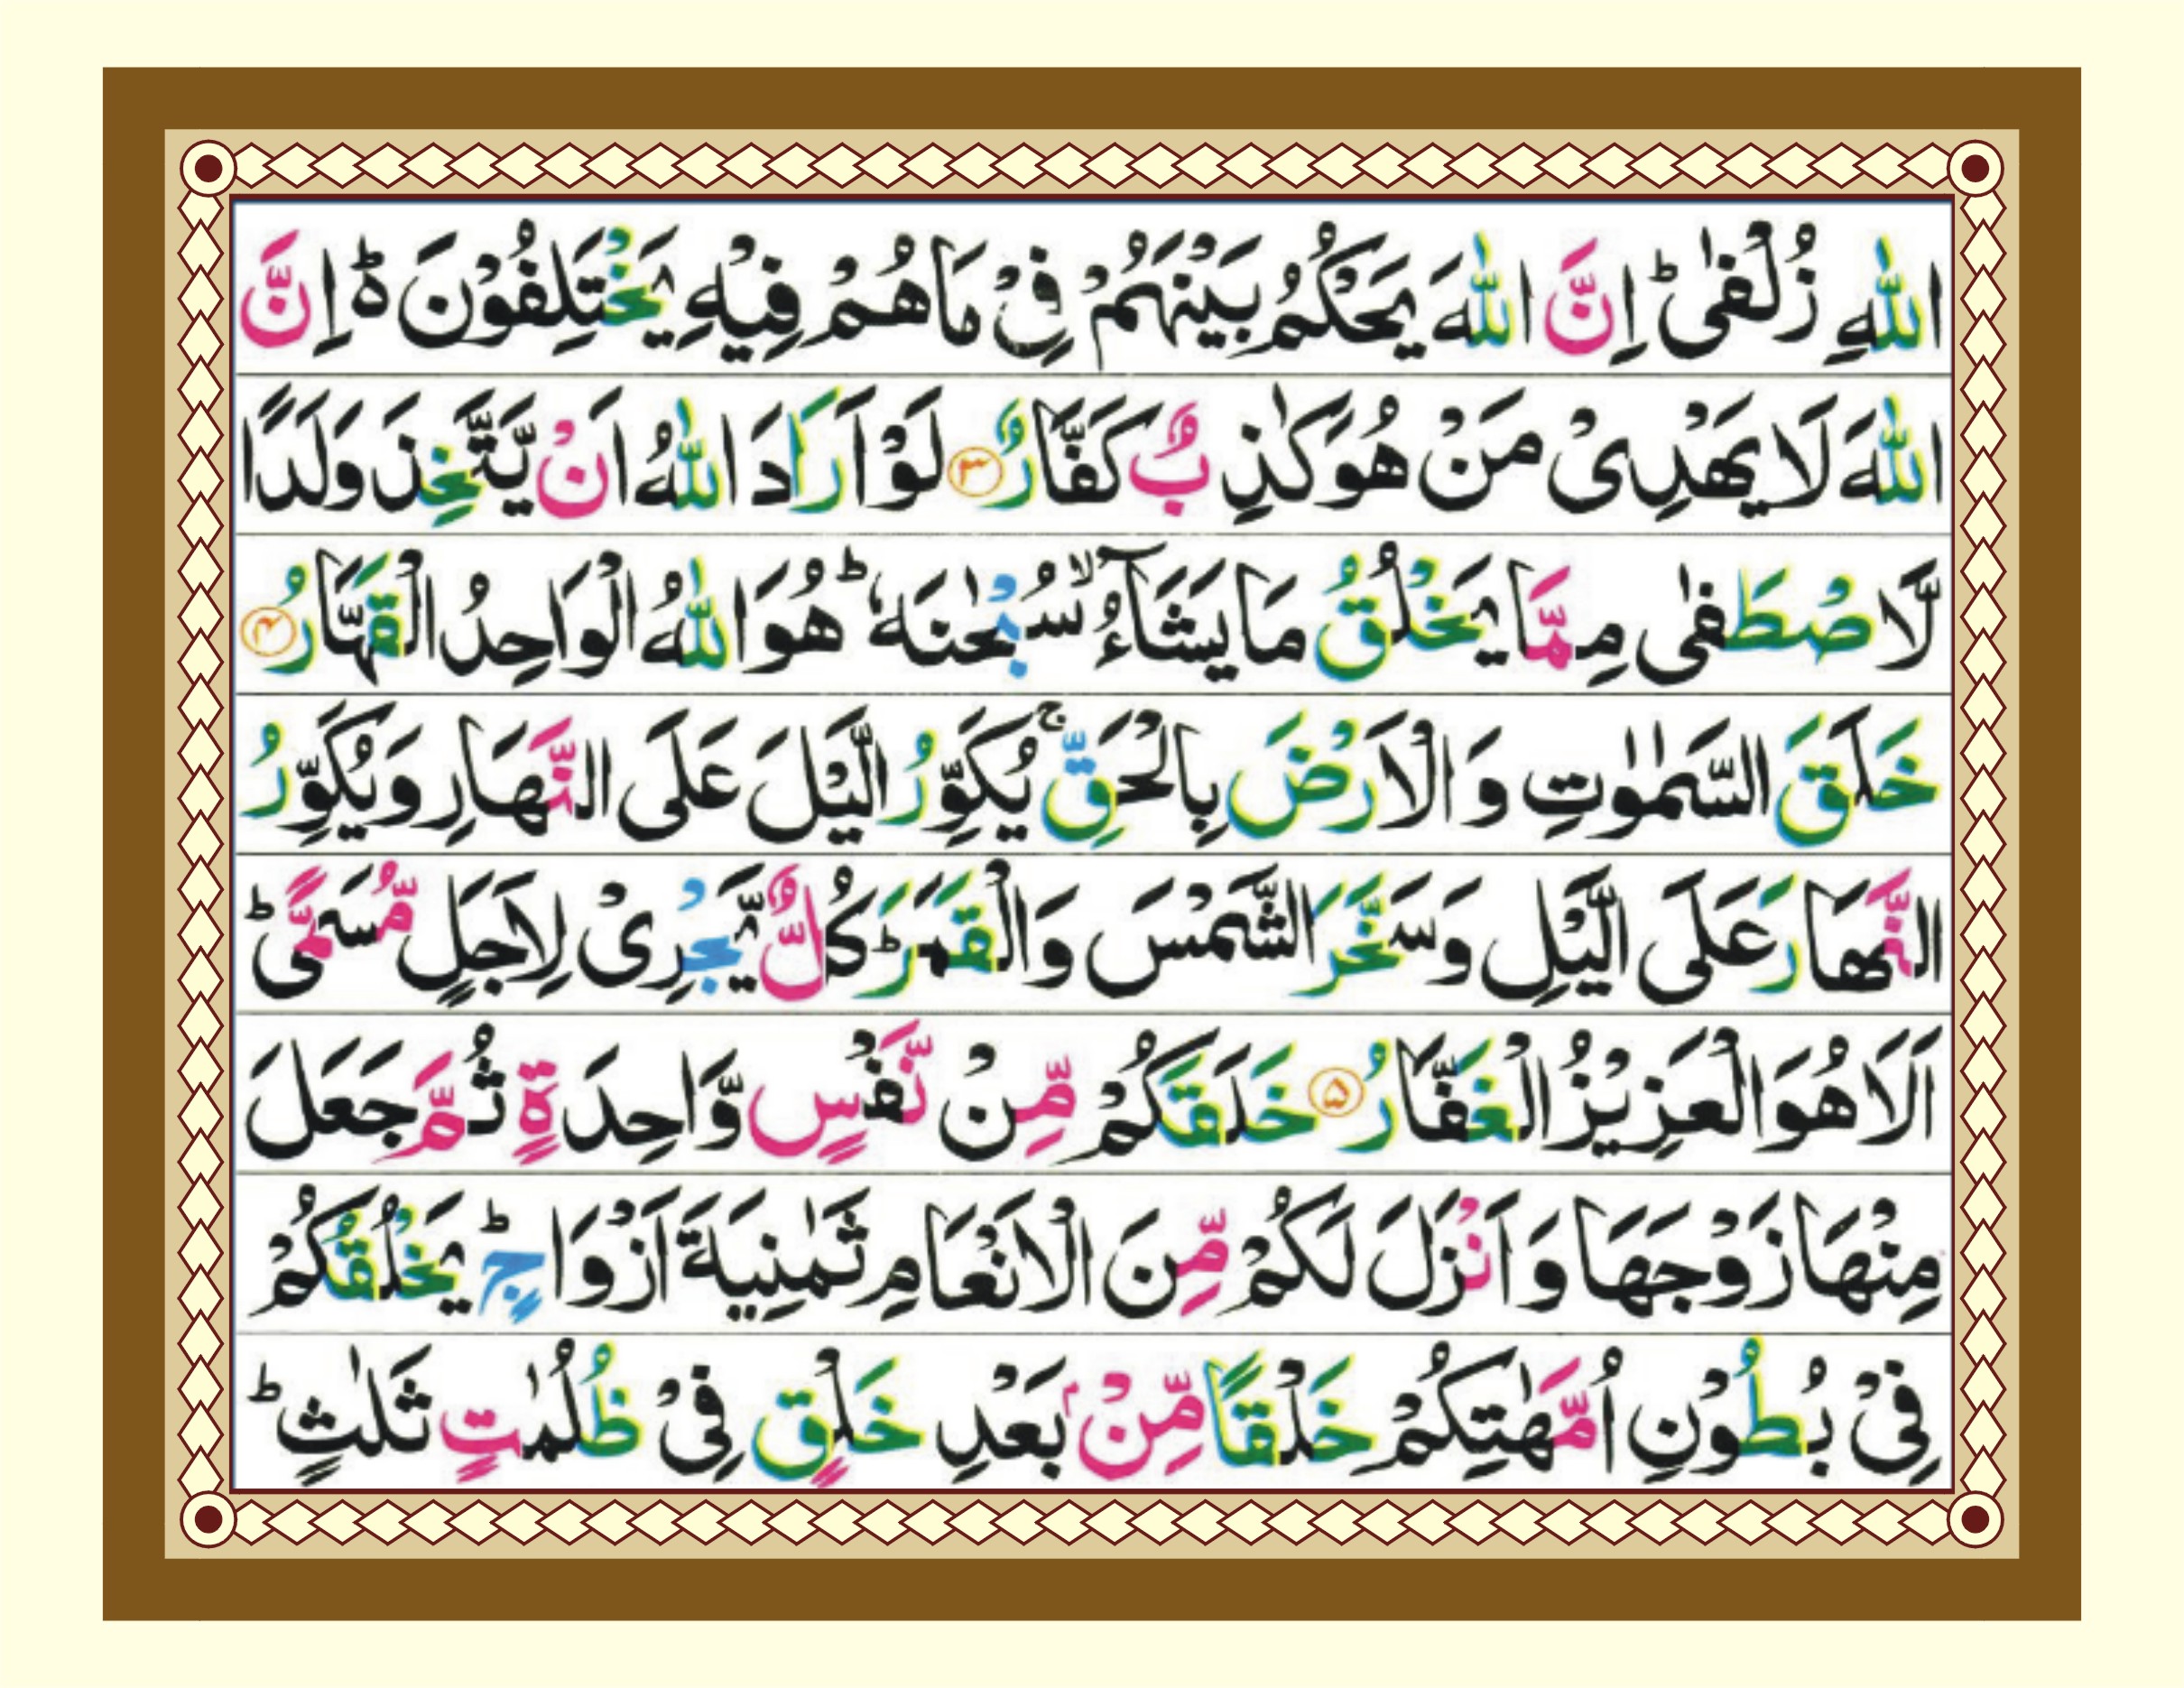 اللّٰهِ زُلْفٰىؕ اِنَّ اللّٰهَ يَحْكُمُ بَيْنَهُمْ فِىْ مَا هُمْ فِيْهِ يَخْتَلِفُوْنَ ؕ۬ اِنَّ
اللّٰهَ لَا يَهْدِىْ مَنْ هُوَ كٰذِبٌ كَفَّارٌ ۝۳ لَوْ اَرَادَ اللّٰهُ اَنْ يَّتَّخِذَ وَلَدًا
لَّاصْطَفٰى مِمَّا يَخْلُقُ مَا يَشَآءُ ۙ سُبْحٰنَهٗ ؕ هُوَ اللّٰهُ الْوَاحِدُ الْقَهَّارُ ۝۴
خَلَقَ السَّمٰوٰتِ وَ الْاَرْضَ بِالْحَقِّ ۚ يُكَوِّرُ الَّيْلَ عَلَى النَّهَارِ وَيُكَوِّرُ
النَّهَارَ عَلَى الَّيْلِ وَسَخَّرَ الشَّمْسَ وَالْقَمَرَ ؕ كُلٌّ يَّجْرِىْ لِاَجَلٍ مُّسَمًّى ؕ
اَلَا هُوَ الْعَزِيْزُ الْغَفَّارُ ۝۵ خَلَقَكُمْ مِّنْ نَّفْسٍ وَّاحِدَةٍ ثُمَّ جَعَلَ
مِنْهَا زَوْجَهَا وَ اَنْزَلَ لَكُمْ مِّنَ الْاَنْعَامِ ثَمٰنِيَةَ اَزْوَاجٍ ؕ يَخْلُقُكُمْ
فِىْ بُطُوْنِ اُمَّهٰتِكُمْ خَلْقًا مِّنْۢ بَعْدِ خَلْقٍ فِىْ ظُلُمٰتٍ ثَلٰثٍ ؕ